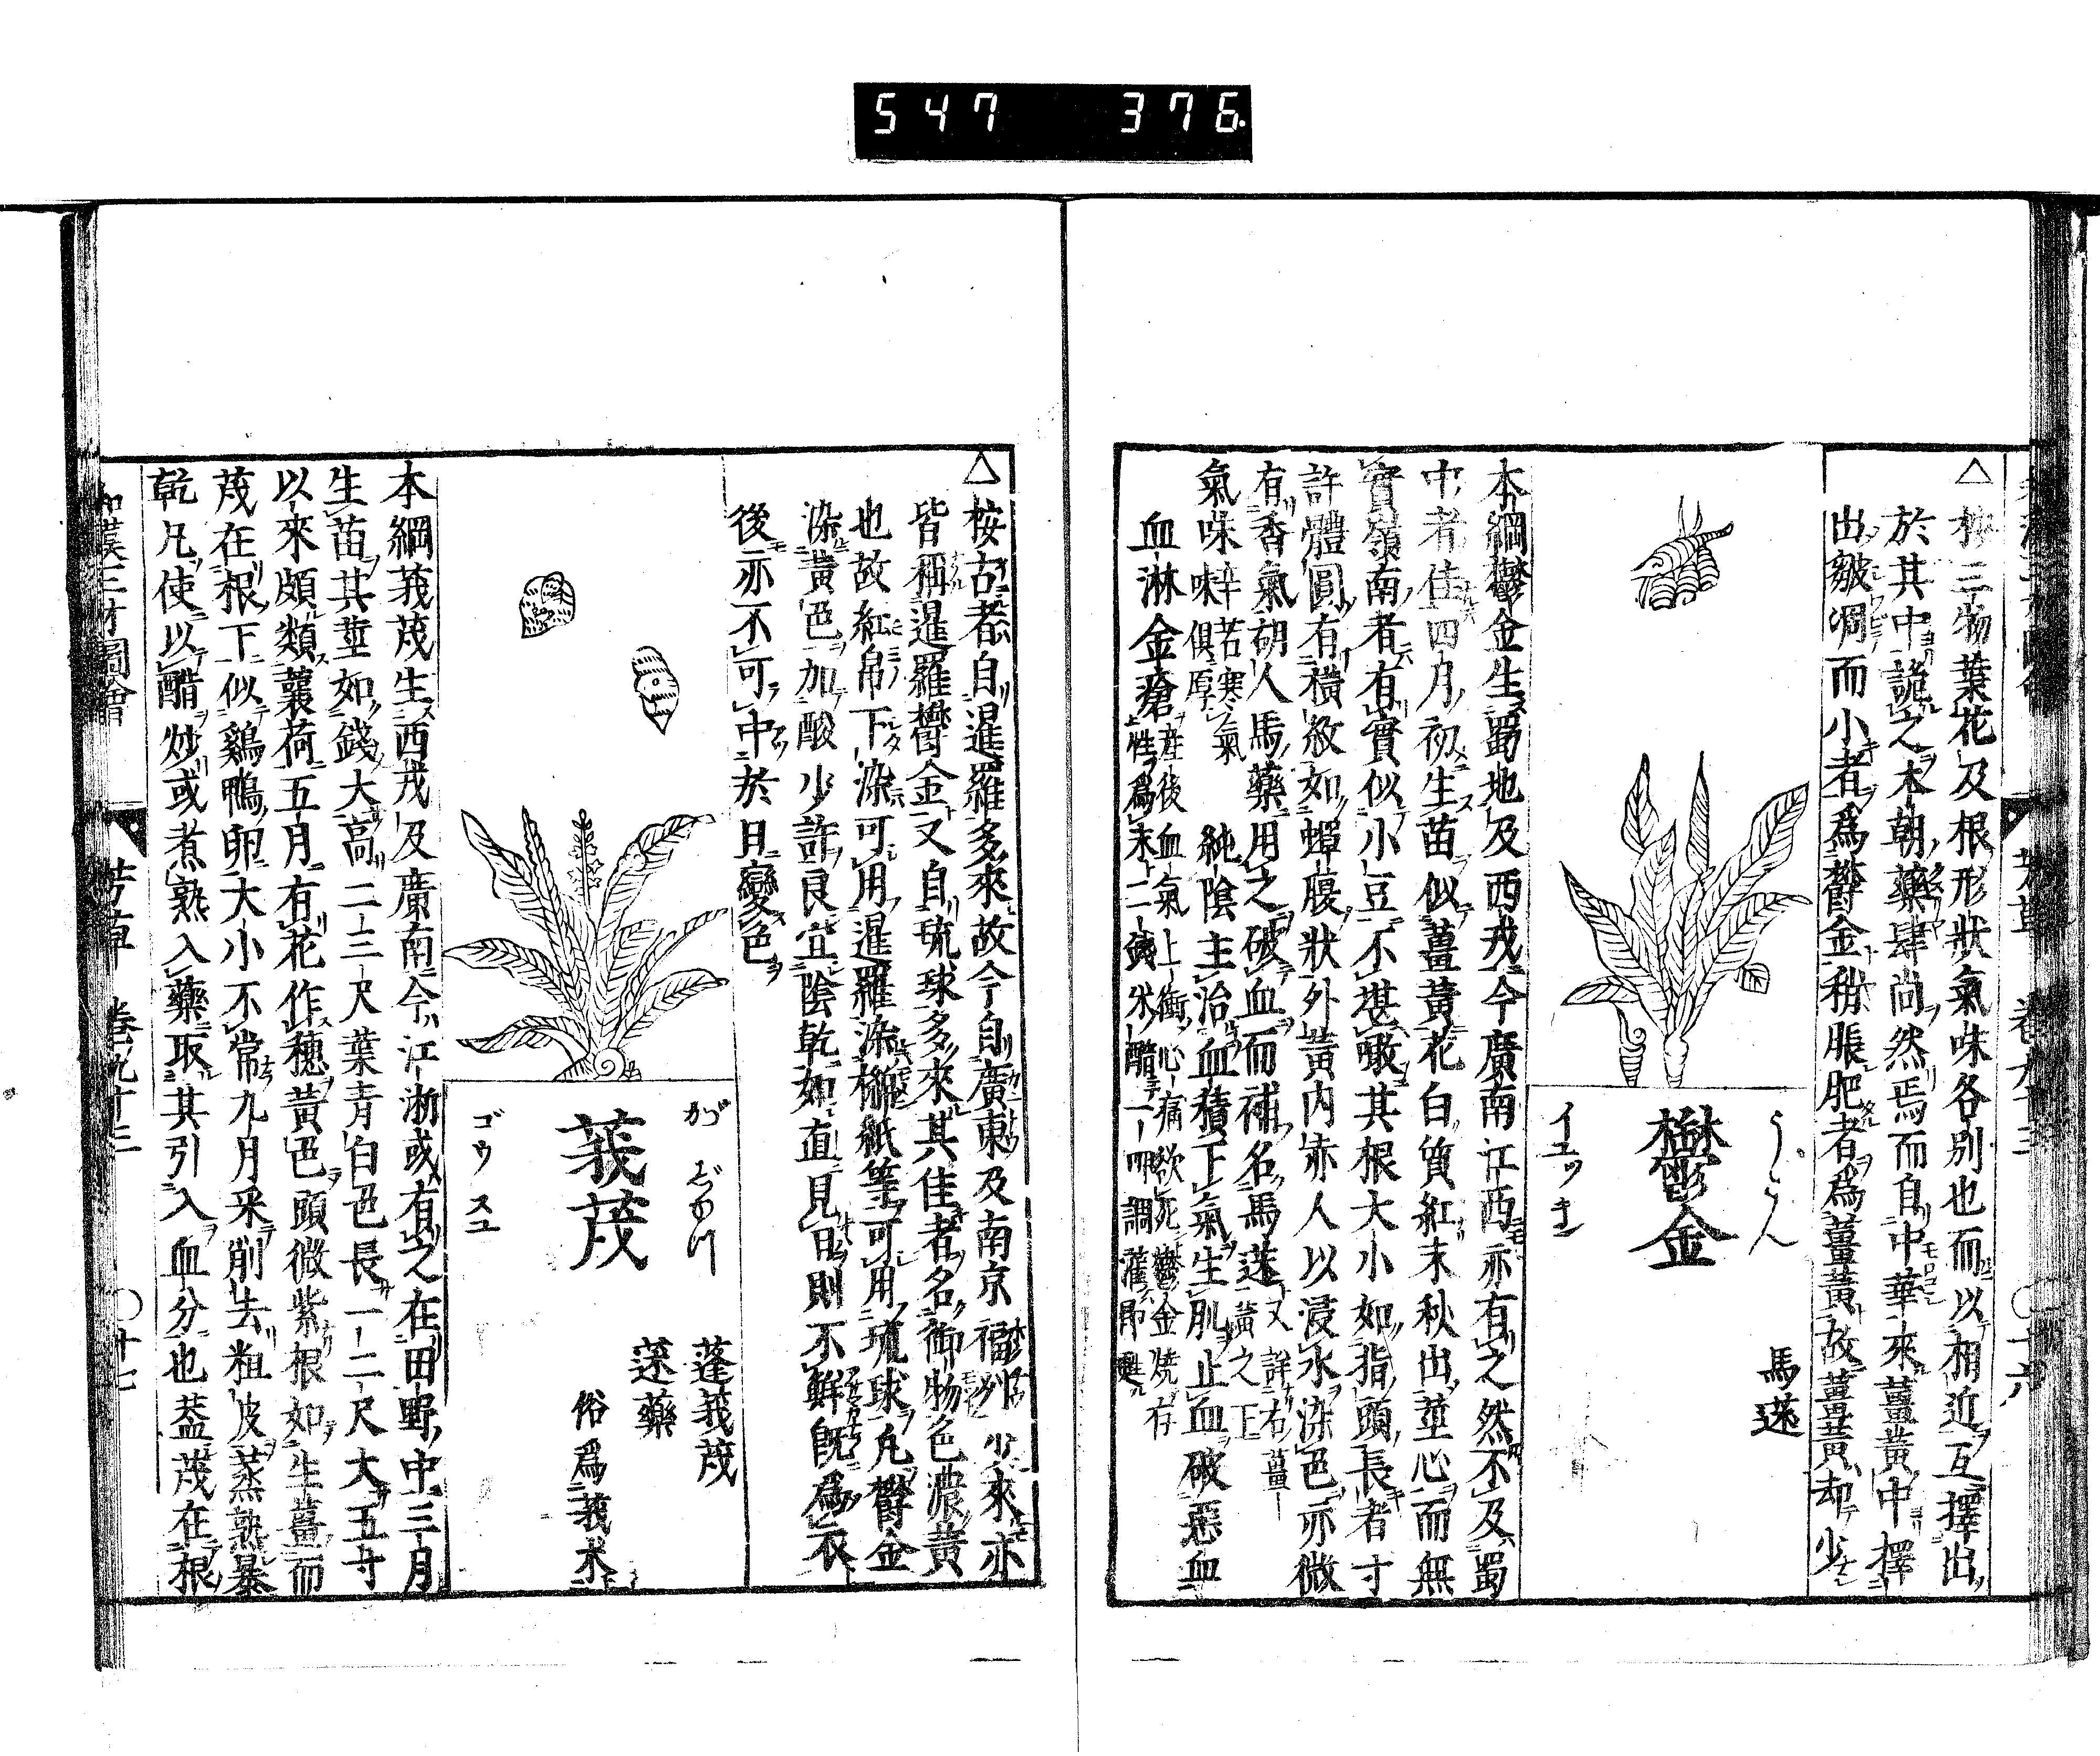 547 376
△按三物葉花及根形狀氣味各別也而以相近互擇出
於其中詭之本朝藥肆尚然焉而自中華來薑黃中擇
出皺凋而小者爲欝金稍脹肥者爲薑黃故薑黃却少
うこん
馬蒁
欝金
イユツ キン
本綱欝金生蜀地及西戎今廣南江西亦有之然不及蜀
中者佳四月初生苗似薑黃花白質紅末秋出莖心而無
實嶺南者有實似小豆不堪噉其根大小如指頭長者寸
許體圓有橫紋如蟬腹狀外黃内赤人以浸水染色亦微
有香氣胡人馬藥用之破血而補名馬蒁又蒁詳右薑黃之下
氣味辛苦寒氣味俱厚純陰主治血積下氣生肌止血破惡血
血淋金瘡産後血氣上衝心痛欲死欝金燒存性爲末二錢米醋一呷調灌即甦
△按古者自暹羅多來故今自廣東及南京福州少來亦
皆稱暹羅欝金又自琉球多來其佳者名御物色濃黃
也故紅帛下染可用暹羅染櫛紙等可用琉球凡欝金
染黃色加酸少許良宜陰乾如直見日則不鮮既爲衣
後亦不可中於日變色
がじゆつ
蓬莪茂
蒁藥
俗爲莪朮
莪茂
ゴウ スユ
本綱莪茂生西戎及廣南今江浙或有之在田野中三月
生苗其莖如錢大高二三尺葉青白色長一二尺大五寸
以來頗類蘘荷五月有花作穗黃色頭微紫根如生薑而
茂在根下似鷄鴨卵大小不常九月采削去粗皮蒸熟暴
乾凡使以醋炒或煮熟入藥取其引入血分也葢茂在根
和漢三才圖會 芳草 卷九十三 ○十七